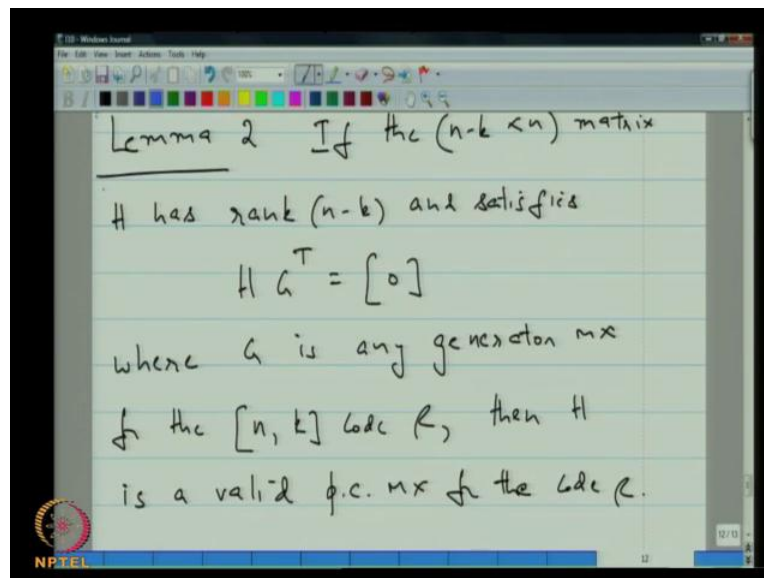 110 - Windows Journal
File Edit View Insert Actions Tools Help
Lemma 2 If the (n-k × n) matrix
H has rank (n-k) and satisfies
H G^T = [0]
where G is any generator mx
for the [n, k] code C, then H
is a valid p.c. mx for the code C.
12/13
12
NPTEL